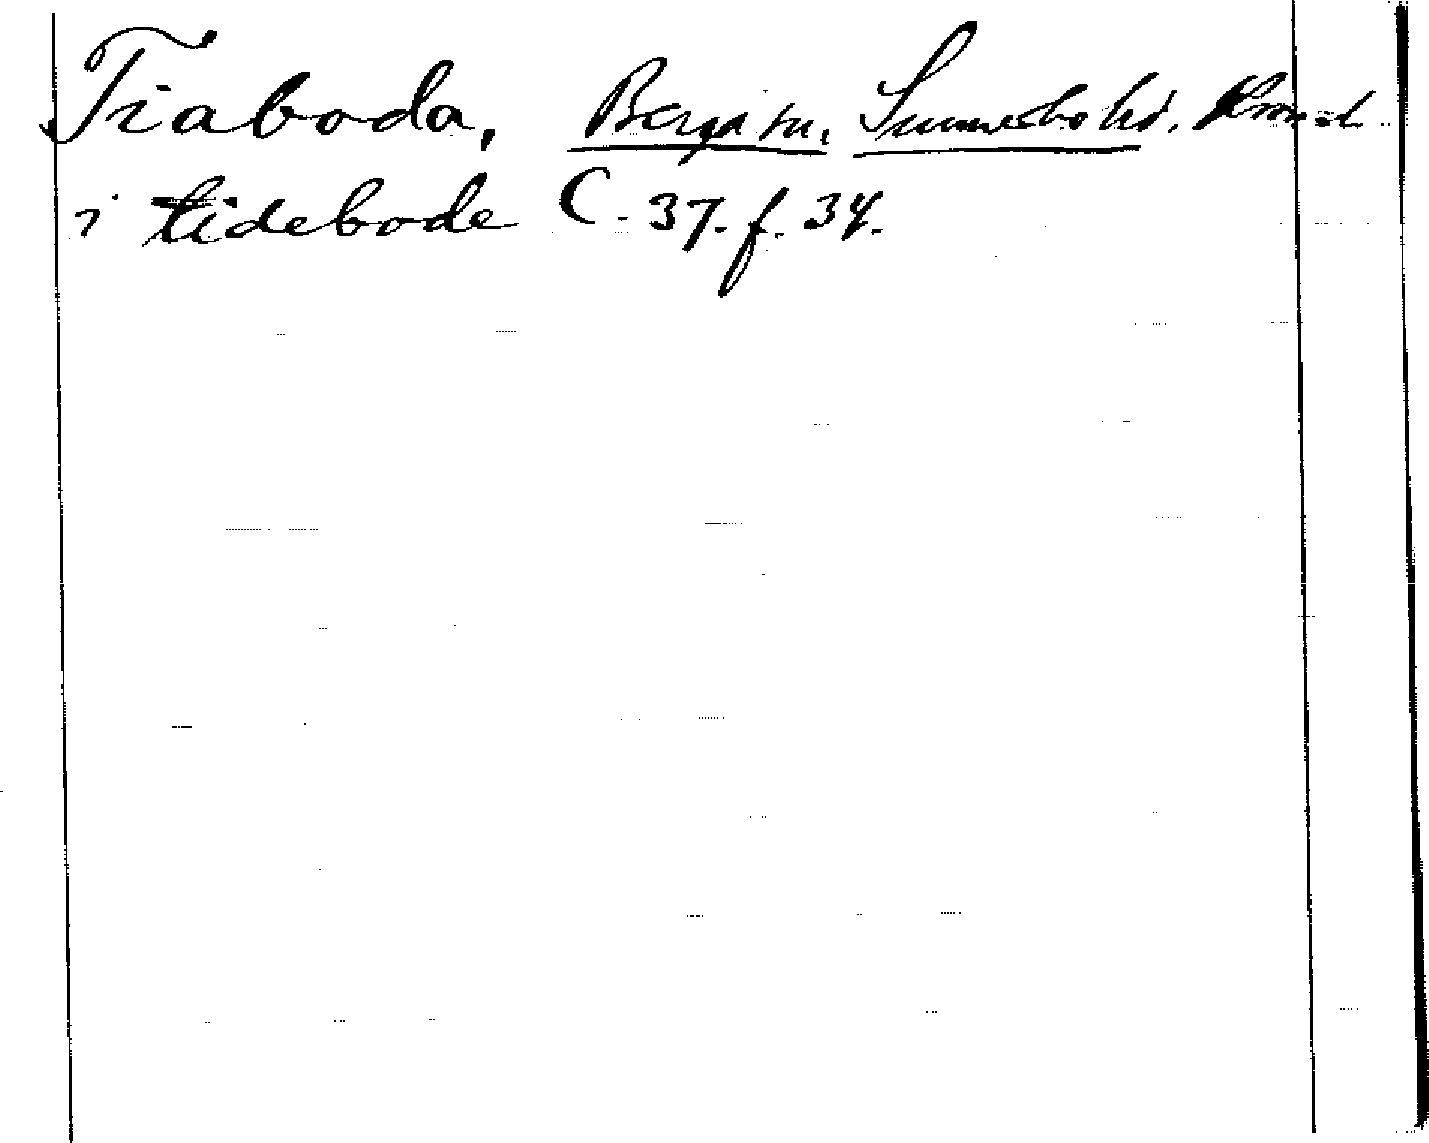 Tiaboda, Berga sn, Sunnerbo hd. Kronob.
i tidebode C. 37. f. 34.